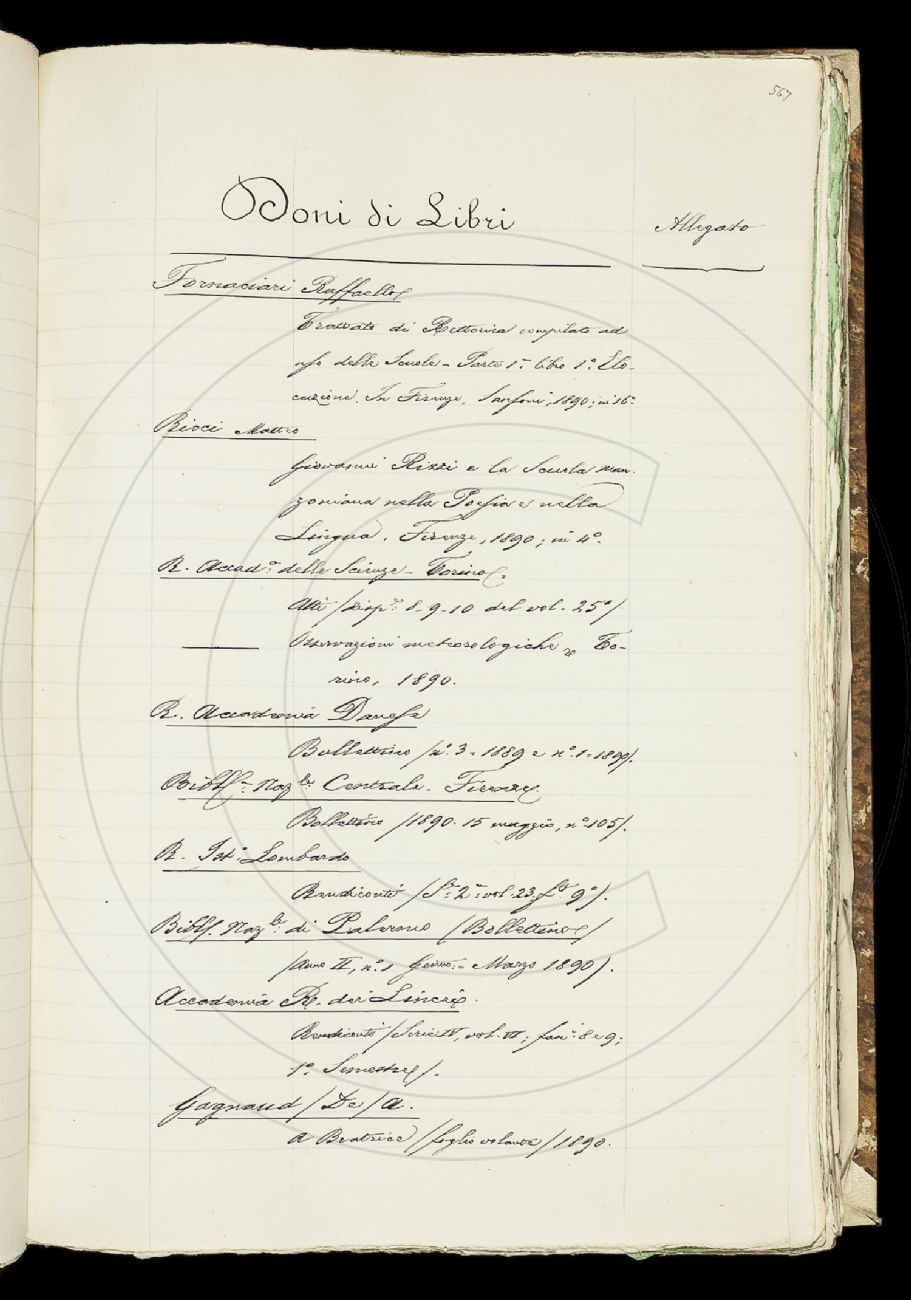 567
Doni di Libri
Allegato
Fornaciari Raffaello
Trattato di Rettorica compilato ad
uso delle Scuole - Parte 1ª libro 1º Elo-
cuzione. In Firenze, Sansoni, 1890; in 16º
Ricci Matteo
Giovanni Rizzi e la Scuola man-
zoniana nella Poesia e nella
Lingua. Firenze, 1890; in 4º.
R. Accadª delle Scienze - Torino.
Atti (disp.e 8-9-10 del vol. 25º)
Osservazioni meteorologiche To-
rino, 1890.
R. Accademia
Bullettino (nº 3 - 1889 e nº 1 - 1890).
Bibl. Nazle Centrale. Firenze
Bollettino (1890. 15 maggio, nº 105).
R. Istº Lombardo
Rendiconti (Sie 2ª vol. 23. 9º).
Bibl. Nazle di Palermo (Bollettino)
(Anno II, nº 1 Genn. - Marzo 1890).
Accademia R. dei Lincei.
Rendiconti (Serie IV, vol. VI; fasci 8 e 9;
1º Semestre).
Gagnaud (De) A.
A Beatrice (foglio volante) 1890.